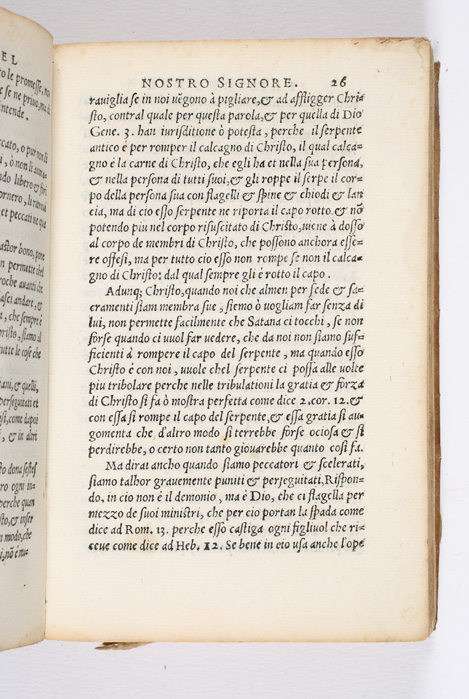 EL
NOSTRO SIGNORE. 26
rauiglia se in noi uēgono à pigliare,& ad affligger Chri=
sto, contral quale per questa parola,& per quella di Dio
Gene. 3. han iurisditione ò potesta, perche il serpente
antico è per romper il calcagno di Christo, il qual calca=
gno è la carne di Christo, che egli ha et nella sua persona,
& nella persona di tutti suoi,& gli roppe il serpe il cor=
po della persona sua con flagelli & spine & chiodi & lan
cia, ma di cio esso serpente ne riporta il capo rotto. & nō
potendo piu nel corpo risuscitato di Christo, uiene à dosso
al corpo de membri di Christo, che possono anchora esse=
re offesi, ma per tutto cio esso non rompe se non il calca=
gno di Christo: dal qual sempre gli è rotto il capo.
Adunq; Christo, quando noi che almen per fede & sa=
cramenti siam membra sue, siemo ò uogliam far senza di
lui, non permette facilmente che Satana ci tocchi, se non
forse quando ci uuol far uedere, che da noi non siamo suf=
ficienti à rompere il capo del serpente, ma quando esso
Christo è con noi, uuole chel serpente ci possa alle uolte
piu tribolare perche nelle tribulationi la gratia & forza
di Christo si fa ò mostra perfetta come dice 2. cor. 12.&
con essa si rompe il capo del serpente,& essa gratia si au=
gomenta che d'altro modo si terrebbe forse ociosa & si
perdirebbe, o certo non tanto giouarebbe quanto cosi fa.
Ma dirai ancho quando siamo peccatori & scelerati,
siamo talhor grauemente puniti & perseguitati, Rispon=
do, in cio non è il demonio, ma è Dio, che ci flagella per
mezzo de suoi ministri, che per cio portan la spada come
dice ad Rom. 13. perche esso castiga ogni figliuol che ri=
ceue come dice ad Heb. 12. Se bene in cio usa anche l'ope